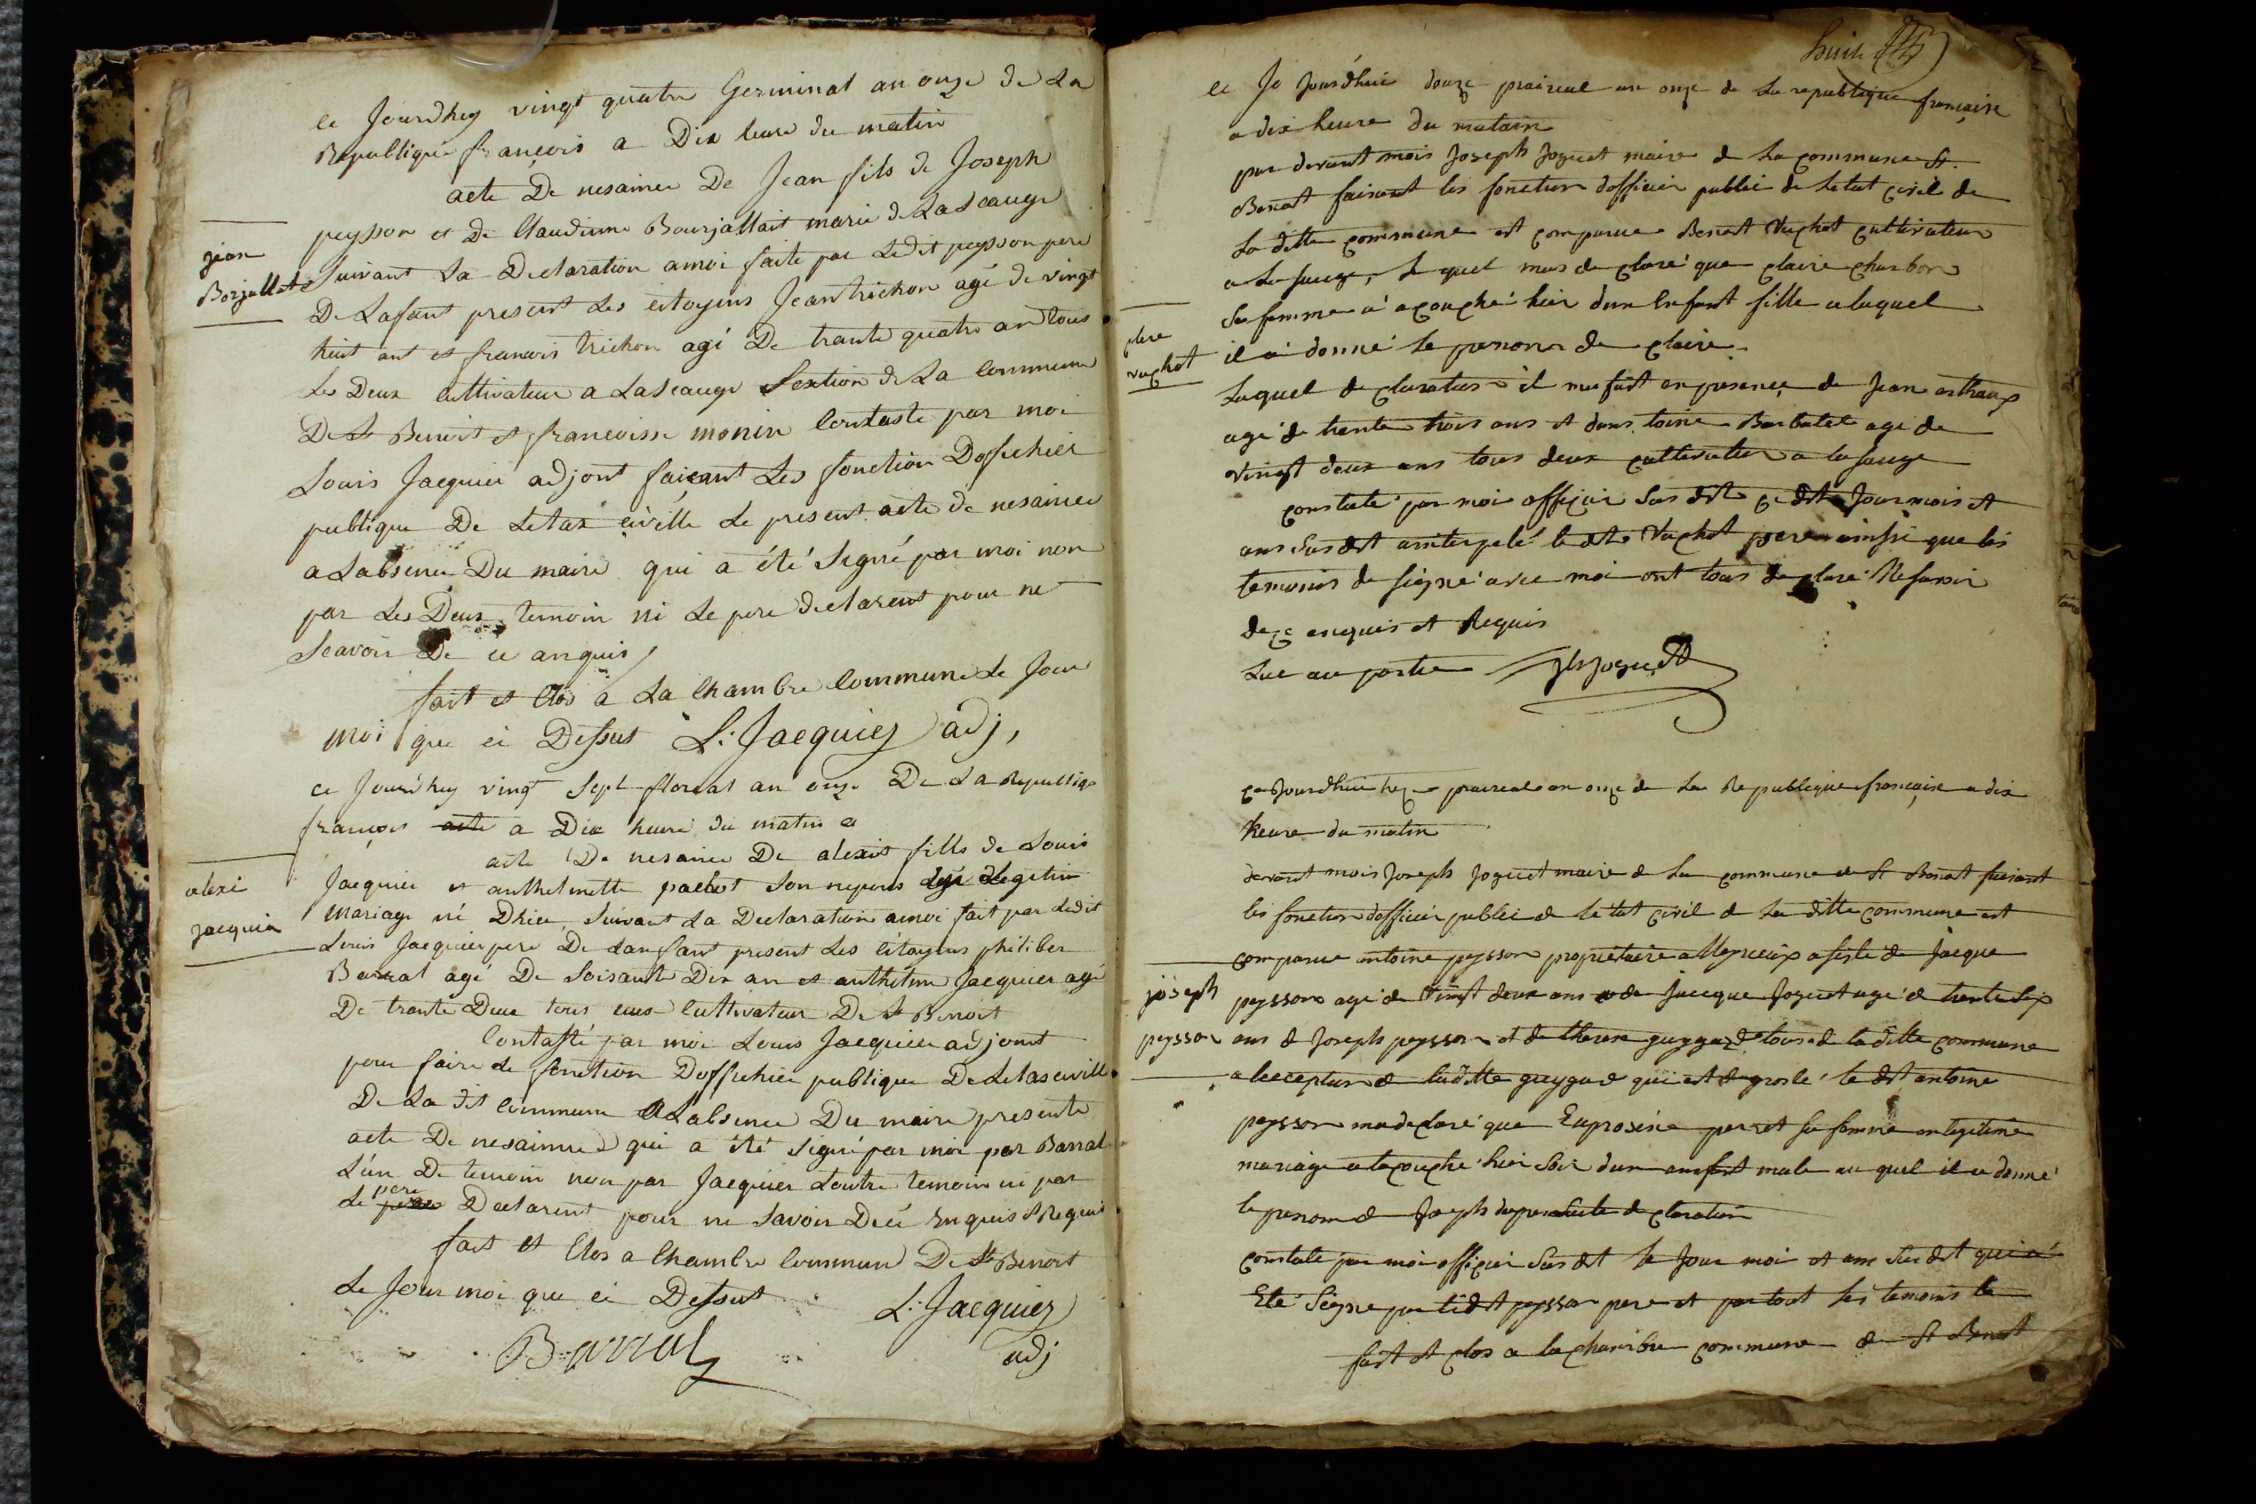 ce Jourdhuy vingt quatre Germinal an onze de La
Republique francois a Dix heure du matin
acte De nesaince De Jean fils de Joseph
peysson et De Claudinne Bourjallait marié de La Scauge
jean
Borjallat
Suivant La Declaration a moi faite par Ledit peysson pere
De Lafant present Les citoyens Jean trichon agé de vingt
huit ant et francois trichon agé De trante quatre an tous
Les Deux cultivateur a La Scauge Section de La Commune
De St Benoit et francoisse monin Contaste par moi
Louis Jacquier adjont faicant Les fonction Dofichier
publique De Letax civille Le present acte de nesaince
a Labsence Du maire qui a été Signé par moi non
par Les Deux temoin ni Le pere declarent pour ne
Scavoir De ce anquis
fait et Clos a La Chambre Commune Le Jour
moi que ci Dessut L. Jacquier adj,
ce Jourdhuy vingt Sept floreal an onze De La Republiq
françois acte a Dix heure du matin
acte De nesaince De alexis fills de Louis
alexi
jacquier
Jacquier et anthelmette pachot Son nepous Legitin
Mariage né Dhier Suivant La Declaration a moi fait par Ledit
Louis Jacquier pere De Lanfant present Les Citoyens philiber
Barral agé De Soisante Dix an et anthelme Jacquier agé
De trante Deux tous eux Cultivateur De St Benoit
Contasté par moi Louis Jacquier adjont
pour faire Le fonction Dofichier publique De Letas civill
De La dit Commune A Labsence Du maire presente
acte De nesaince qui a été Signé par moi par Barral
L'un De temoin non par Jacquier Loutre temoin ni par
Le pere Declarent pour ne Savoir De cé Enquis & Requi
fait et Clos a Chambre Commun De St Benoit
Le Jour moi que ci Dessut L. Jacquier
Barral adj
Suite
ce Jo Jourdhuit douze praireal an onze de La republique française
a dix heure du matain
par devant mois Joseph Joguet maire de La commune St
Benoit faisant les fonction dofficier public de Letat civil de
La ditte commune est comparue Benoit Vuchot cultivateur
a La Sauge, Le quel mas de claré que claire charbon
Sa femme a acouché hier dun Enfant fille a laquel
clere
vuchot
il a donné Le prenom de claire
Laquel de claration il ma fait en presence de Jean
agé de trente trois ans et dans toine Barbatet agé de
vingt deux ans tous deux cultivateur a la Sauge
constaté par moi officier Sus dit ce dit Jour mois et
ans Sus dit anterpelé le dit Vuchot pere ainssi que les
temoins de Signé avec moi ont tous de claré Ne Savoir
de ce enquis et Requis
Lue au partie Jh Joguet
ce Jourdhuit treze praireal an onze de La Republique française a dix
heure du matin
devant mois Joseph Joguet maire de La commune de St Benoit faisant
les fonction dofficier public de Létat civil de La ditte commune est
comparue antoine peysson proprietaire a Meprieux asisté de Jacque
joseph
peysson
peysson agé de Vingt deux ans et de Jacque Joguet agé de trente Six
ans de Joseph peysson et de therese guygard tous de la ditte commune
a lexception de laditte guygard qui est de groslé le dit antoine
peysson ma declaré que Euprosine perret Sa femme en legitime
mariage a acouché hier Soir dun anfant male au quel il a donné
le prenom de Joseph Sa presente declaration
constaté par moi officier Sus dit le Jour moi et ans Sus dit qui a
Eté Signe par ledit peysson pere et par tout les temoins le
fait et clos a la chambre commune de St Benoit